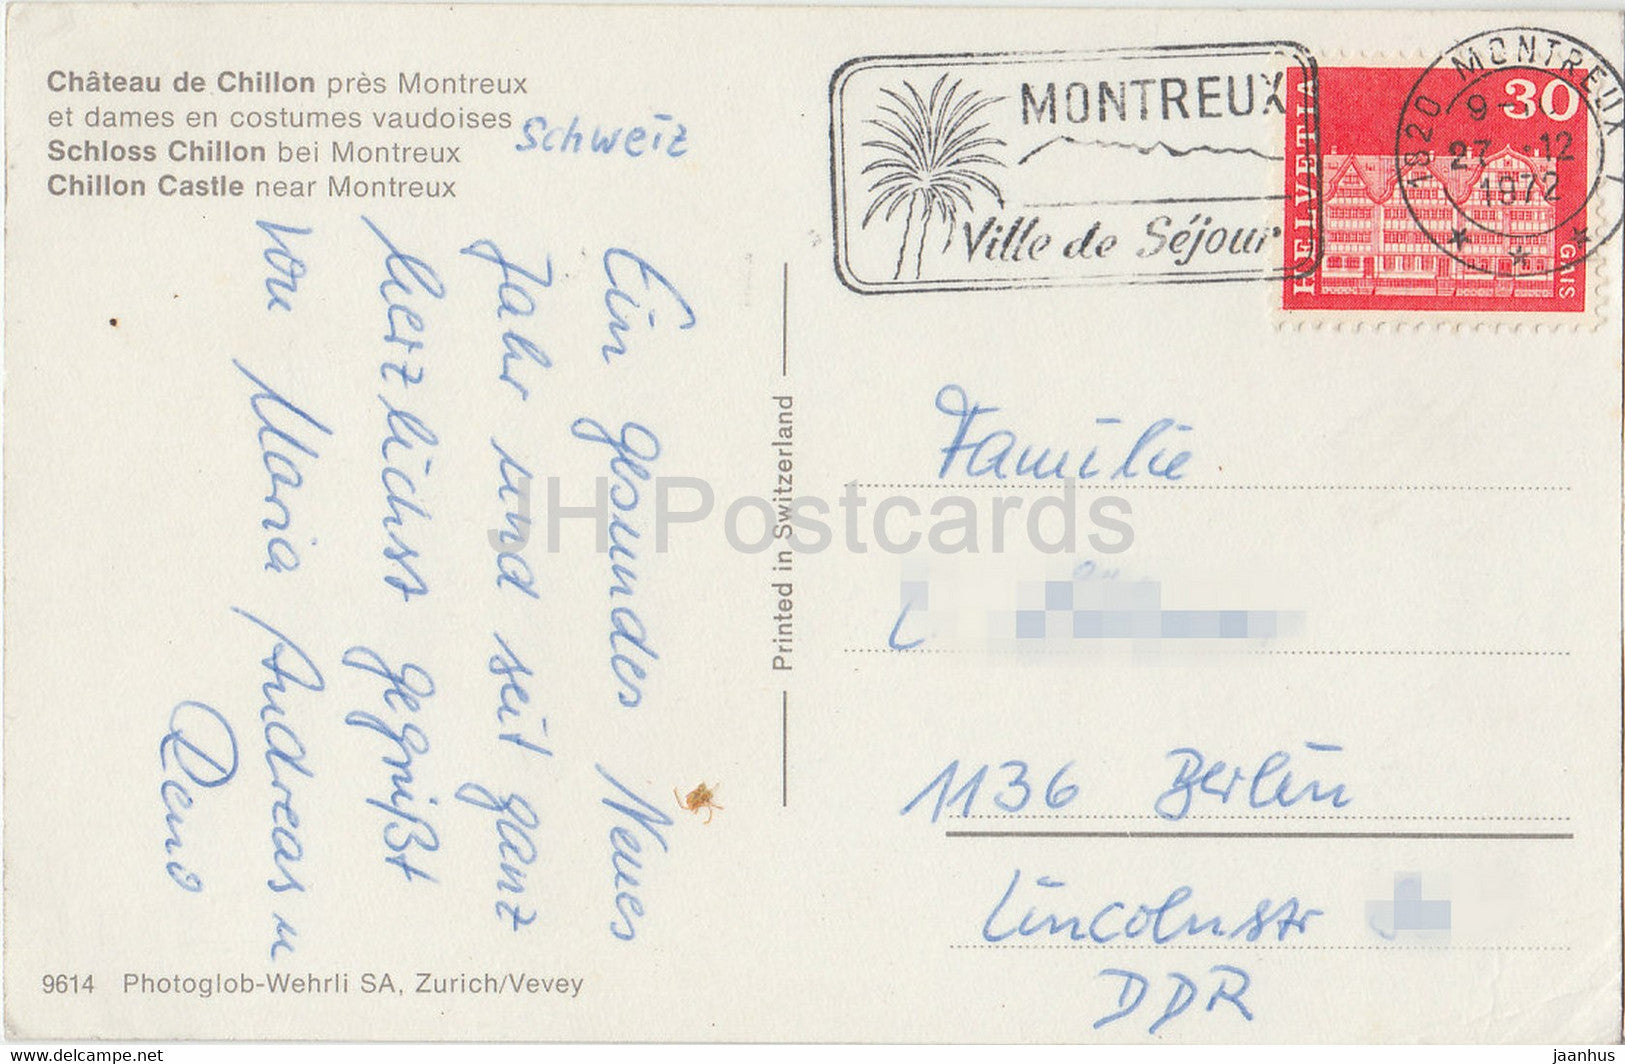 Château de Chillon près Montreux
et dames en costumes vaudoises
Schloss Chillon bei Montreux
Chillon Castle near Montreux
Schweiz
Ein gesundes Neues
Jahr und seit ganz
herzlichst gegrüßt
von Maria Andreas u
9614 Photoglob-Wehrli SA, Zurich/Vevey
Printed in Switzerland
MONTREUX
Ville de Séjour
HELVETIA
30
GAIS
1820 MONTREUX 1
9
27.12
1972
Familie
1136 Berlin
Lincolnstr
DDR
JH Postcards
www.delcampe.net
jaanhus